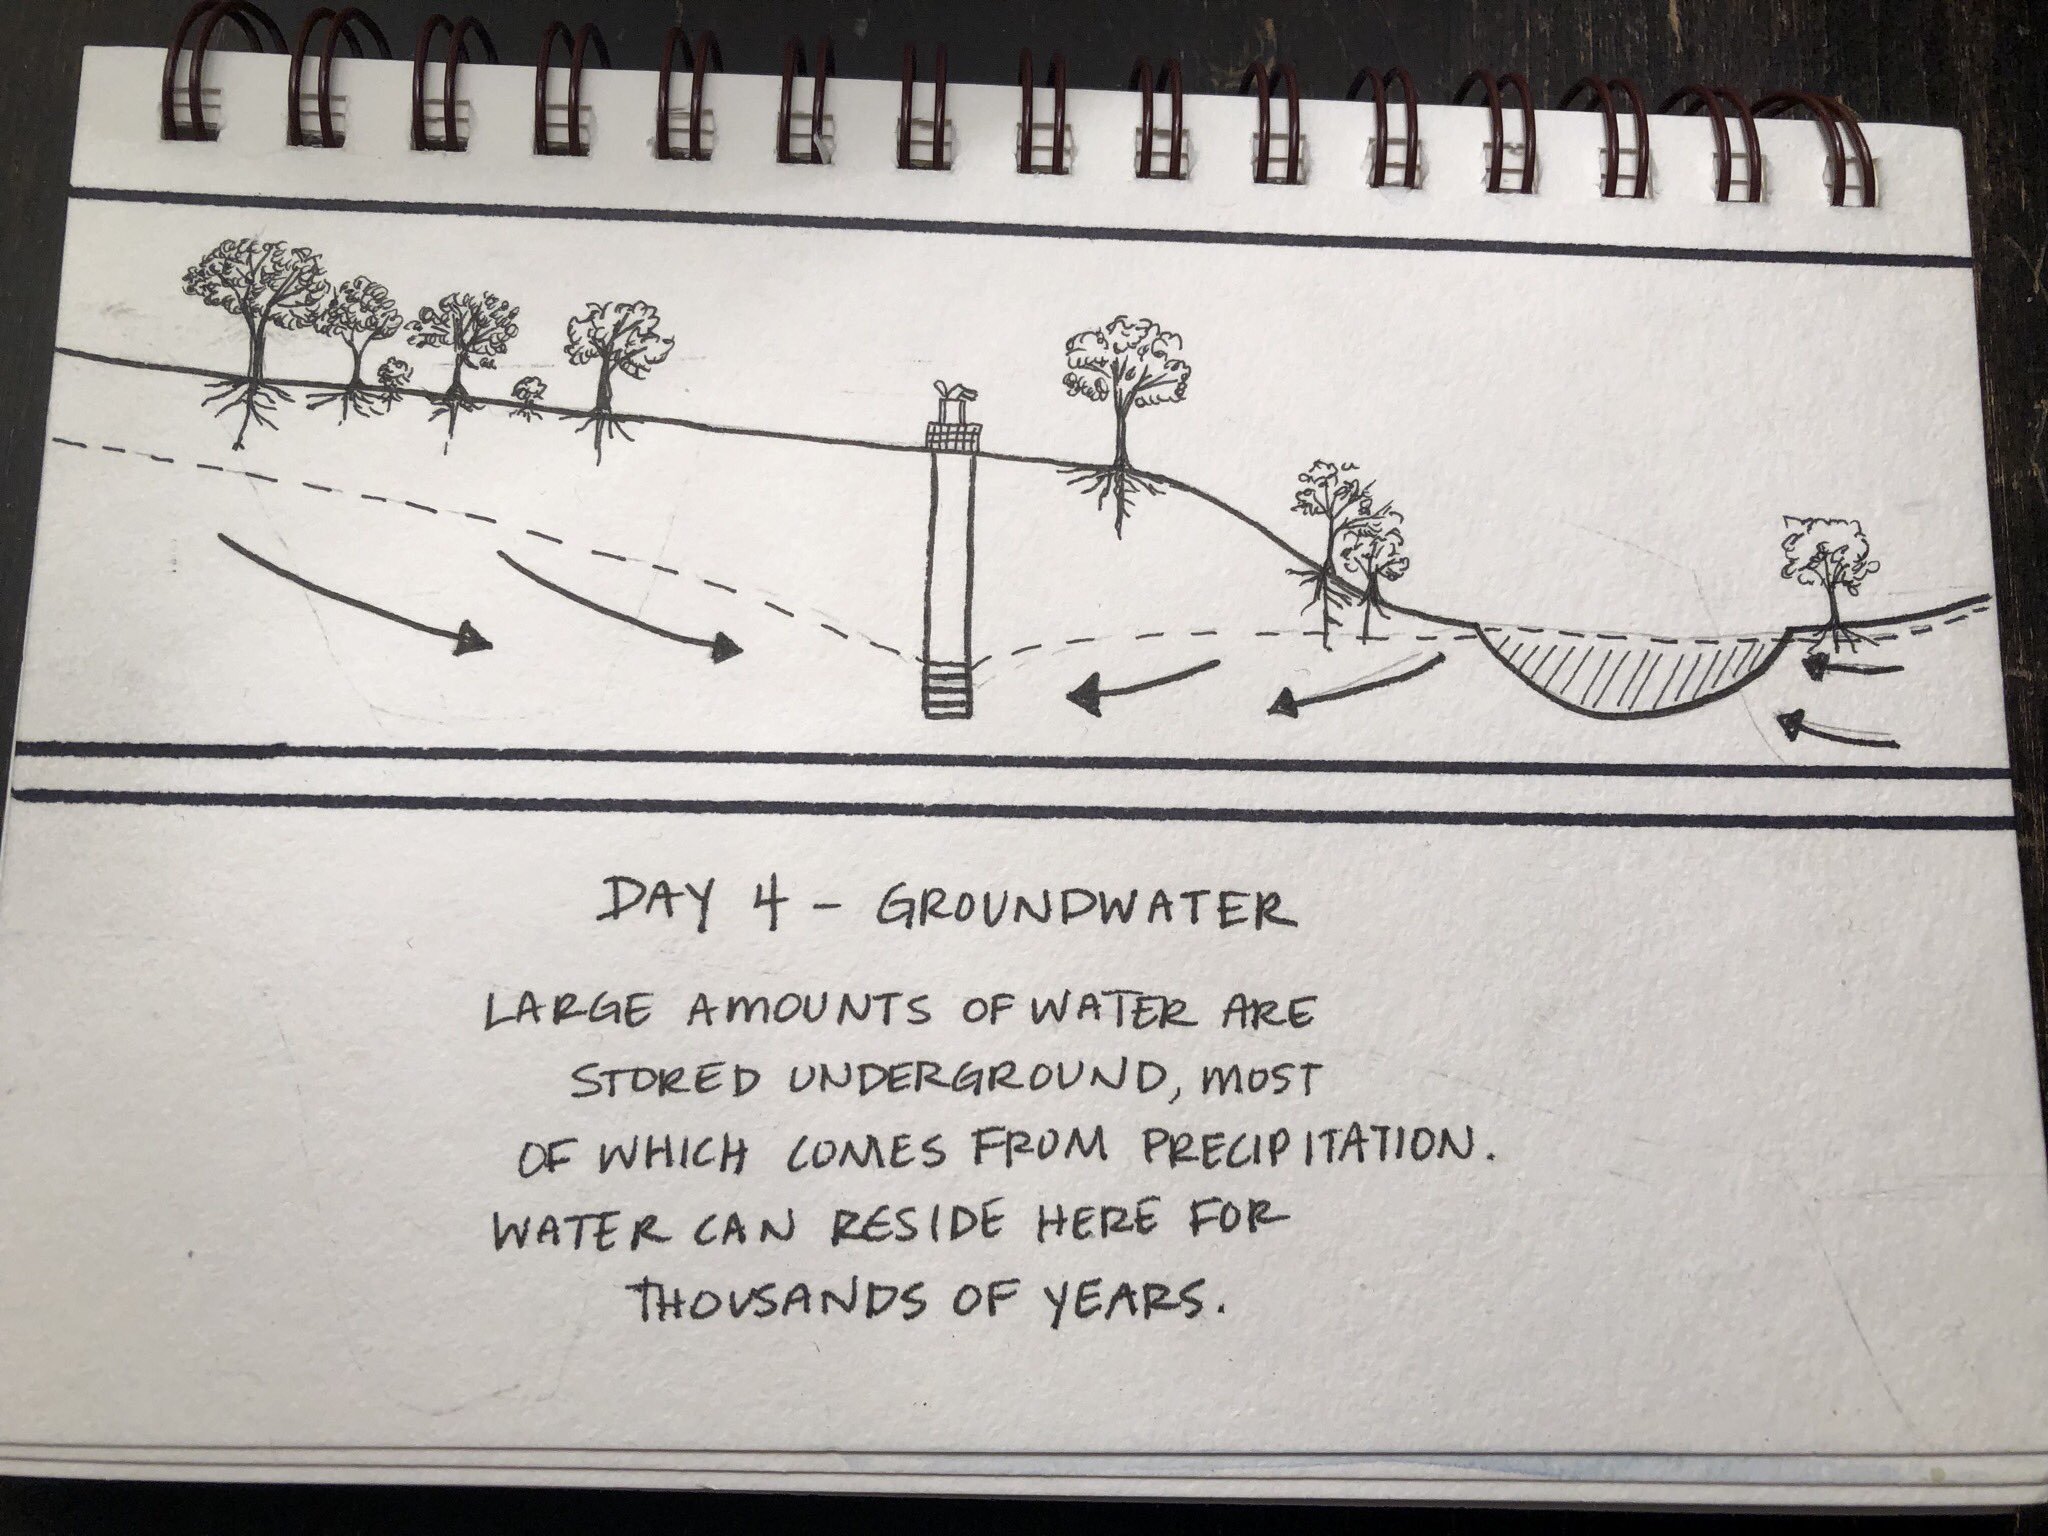 DAY 4 - GROUNDWATER
LARGE AMOUNTS OF WATER ARE
STORED UNDERGROUND, MOST
OF WHICH COMES FROM PRECIPITATION.
WATER CAN RESIDE HERE FOR
THOUSANDS OF YEARS.